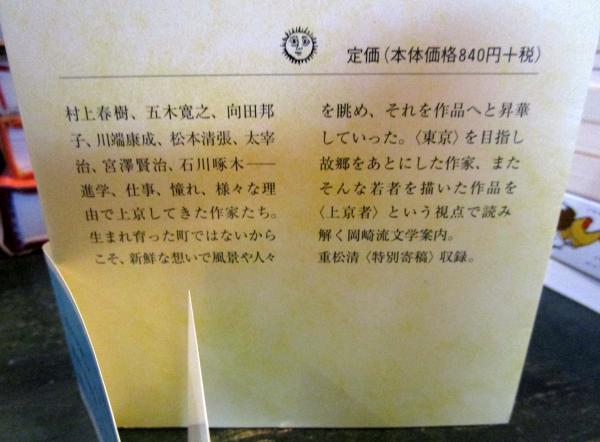 定価（本体価格840円＋税）
村上春樹、五木寛之、向田邦
子、川端康成、松本清張、太宰
治、宮澤賢治、石川啄木――
進学、仕事、憧れ、様々な理
由で上京してきた作家たち。
生まれ育った町ではないから
こそ、新鮮な想いで風景や人々
を眺め、それを作品へと昇華
していった。〈東京〉を目指し
故郷をあとにした作家、また
そんな若者を描いた作品を
〈上京者〉という視点で読み
解く岡崎流文学案内。
重松清〈特別寄稿〉収録。